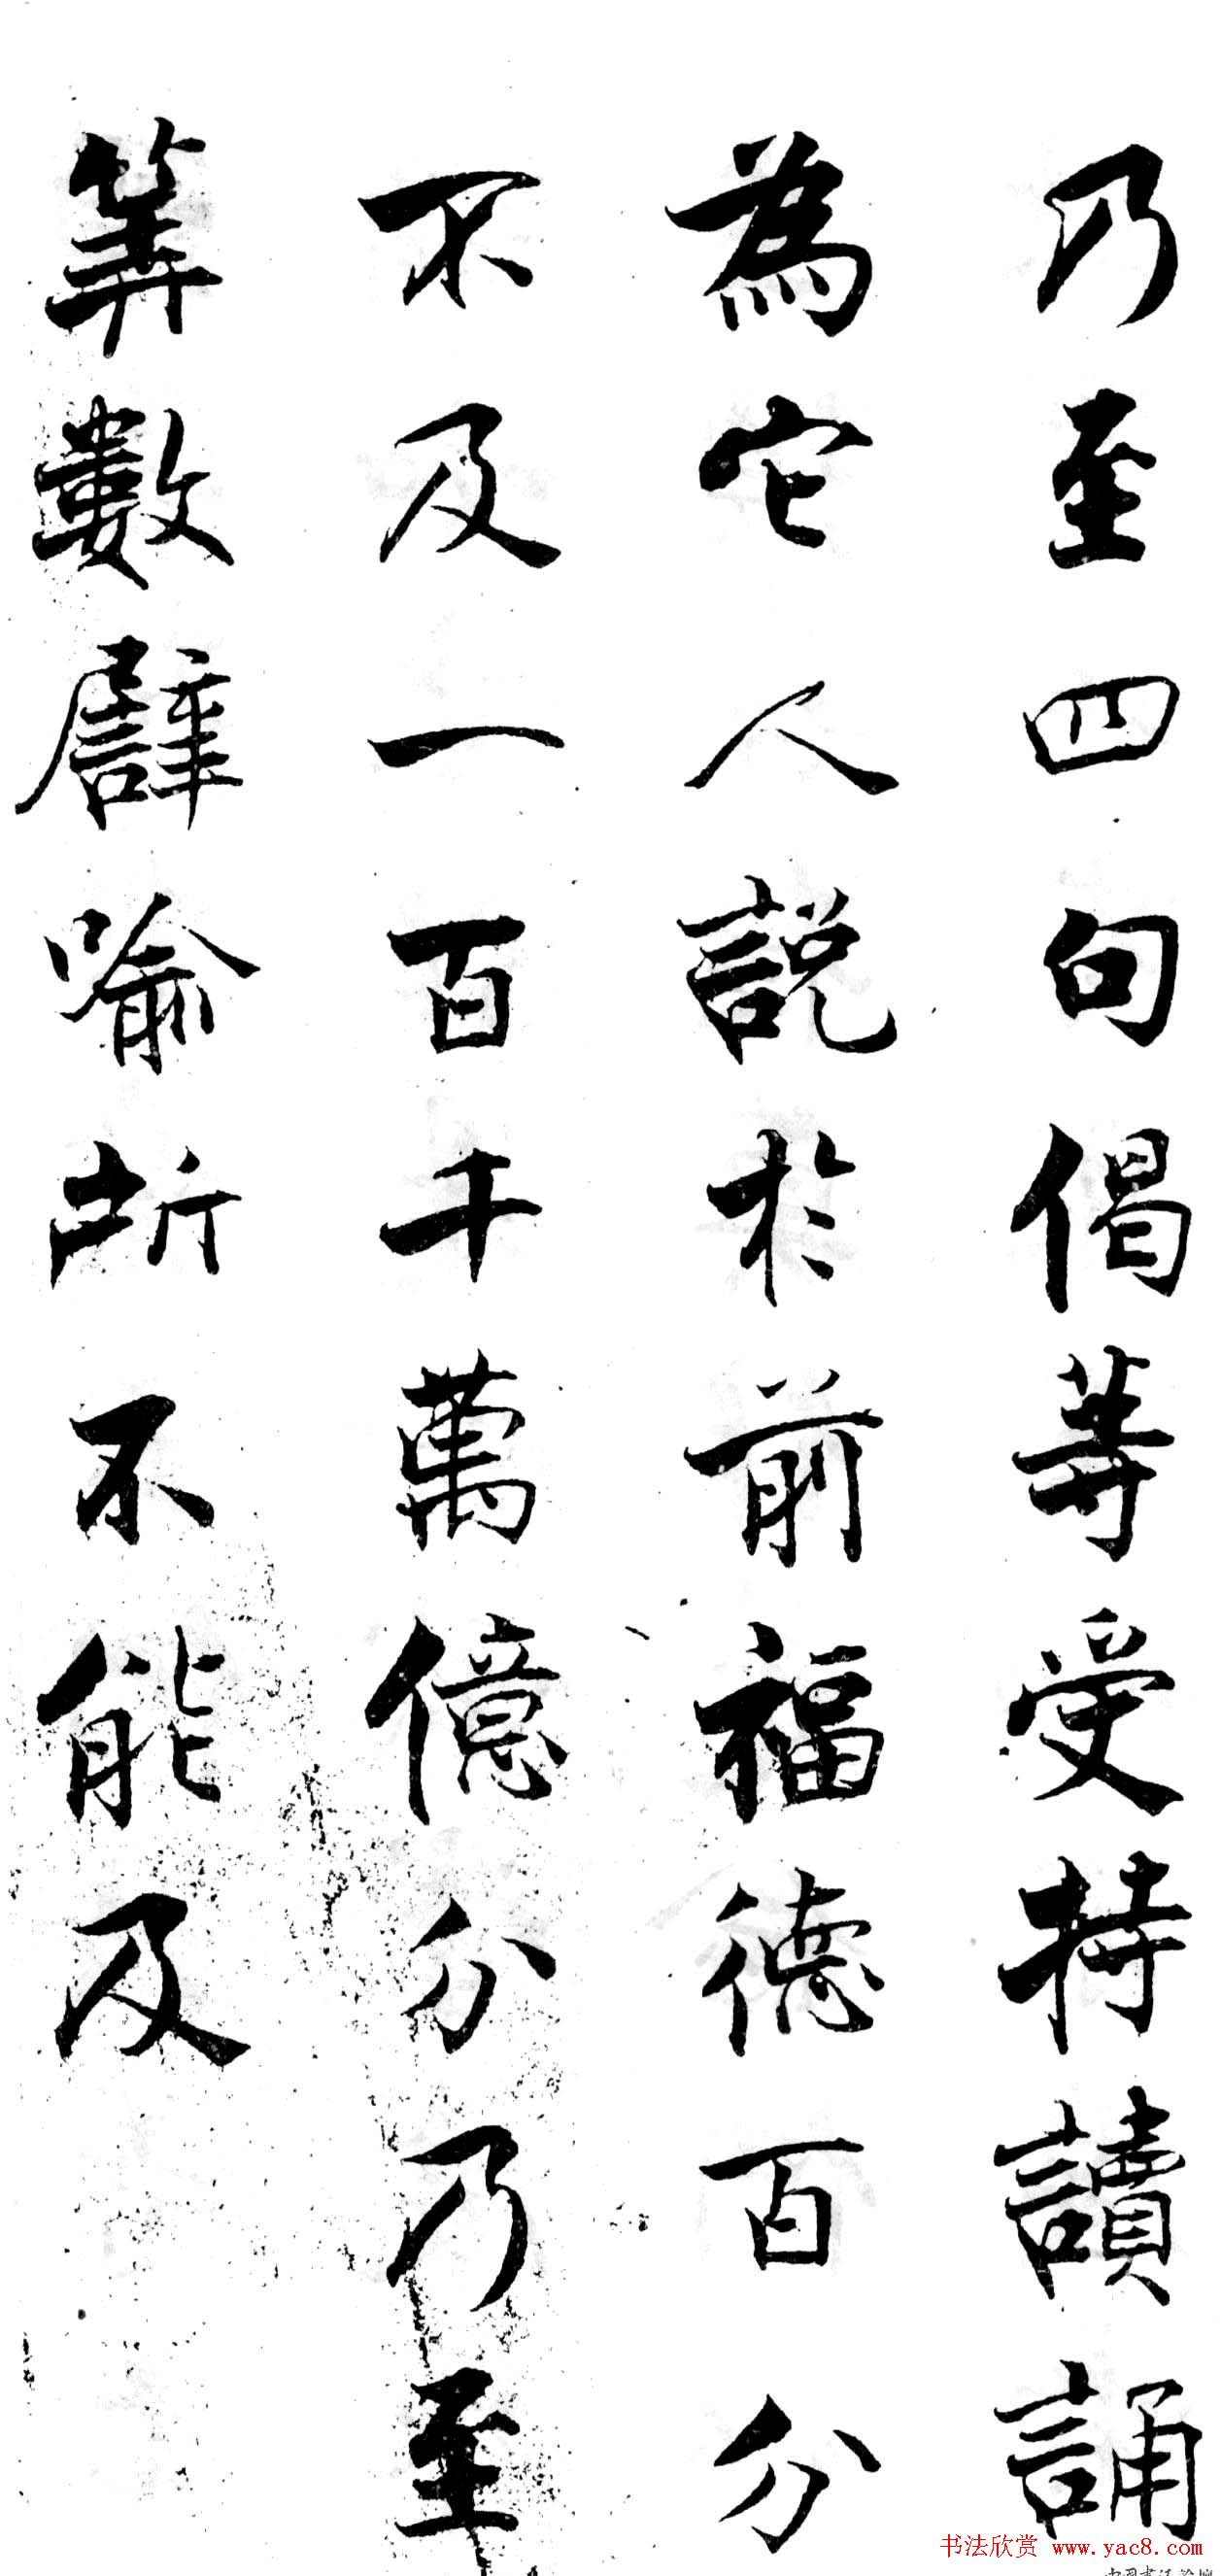 乃至四句偈等受持讀誦
為它人説於前福德百分
不及一百千萬億分乃至
筭數譬喻所不能及
书法欣赏 www.yac8.com